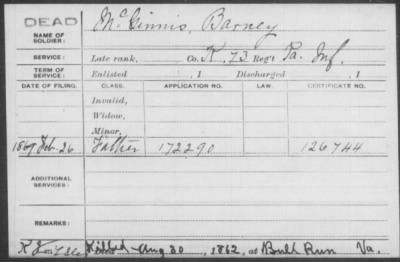 DEAD
NAME OF SOLDIER: McGinnis, Barney
SERVICE: Late rank, Co. K, 73 Reg't Pa. Inf.
TERM OF SERVICE: Enlisted , 1 Discharged , 1
DATE OF FILING. CLASS. APPLICATION NO. LAW. CERTIFICATE NO.
Invalid,
Widow,
Minor,
1869 Feb. 26 Father 172290 126744
ADDITIONAL SERVICES:
REMARKS:
Killed Aug 30, 1862, at Bull Run Va.